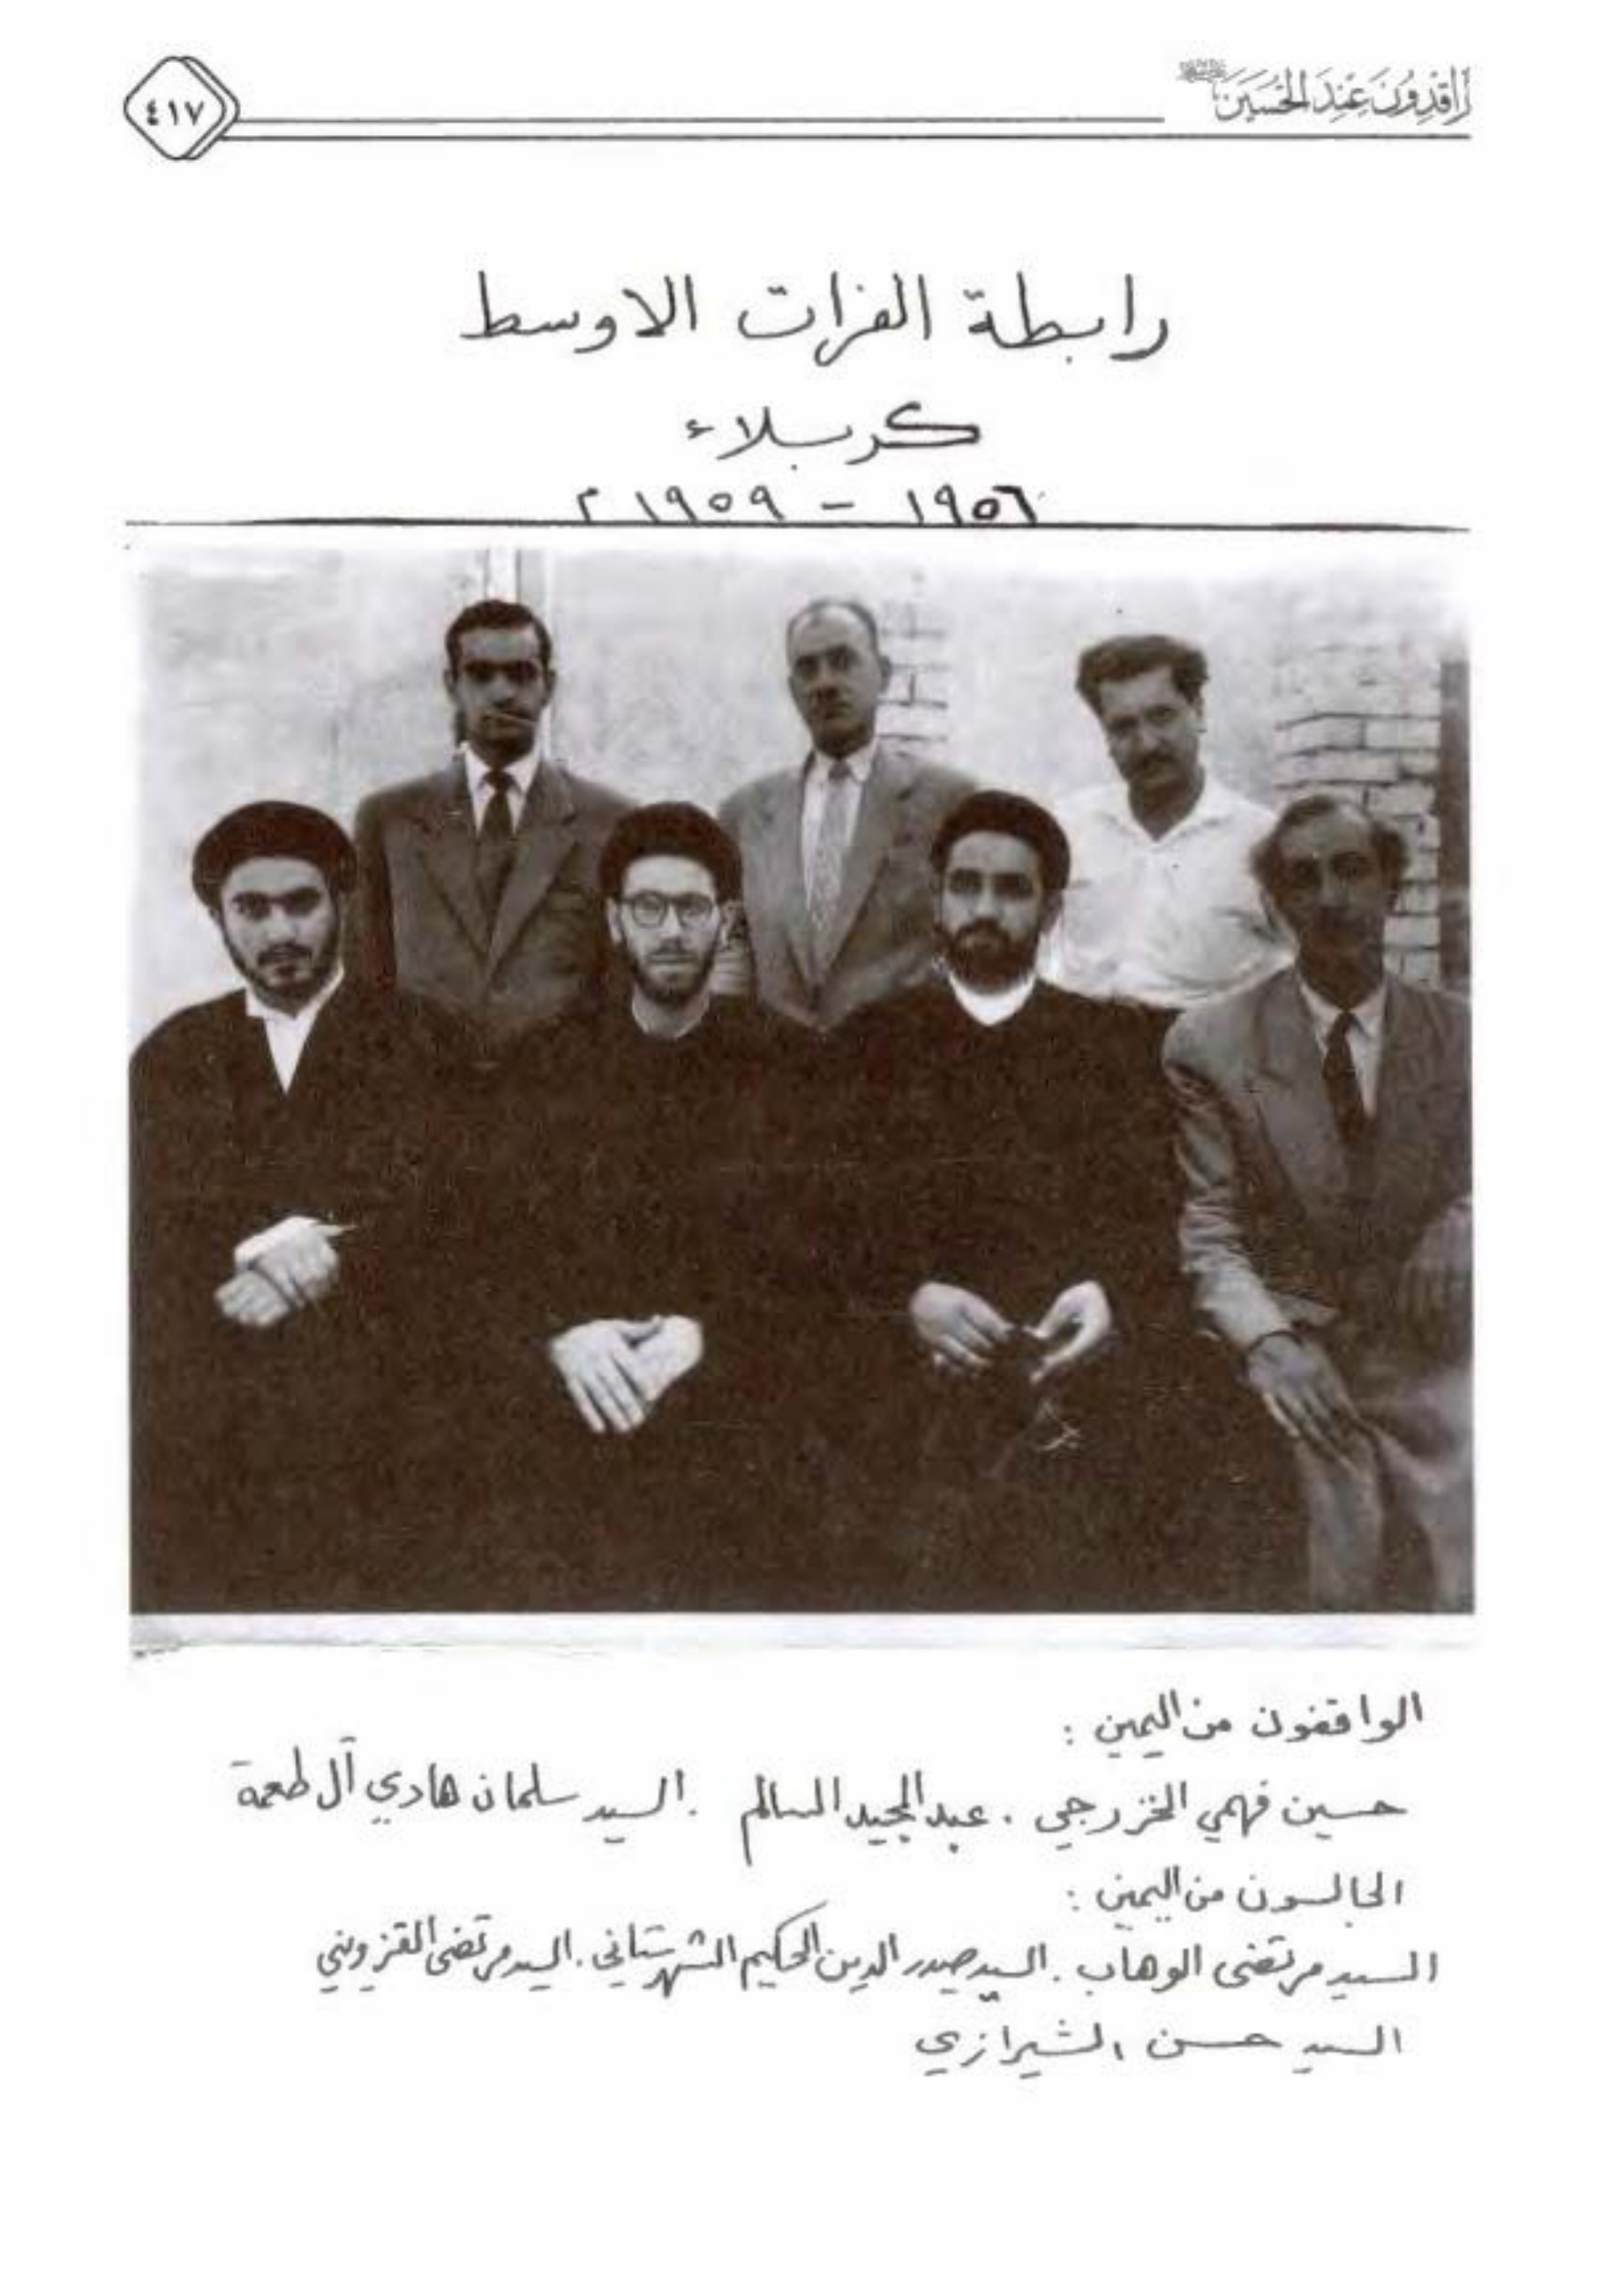 راقدون عند الحسين
٤١٧
رابطة الفرات الاوسط
كربلاء
١٩٥٦ - ١٩٥٩ م
الواقفون من اليمين :
حسين فهمي الخزرجي . عبد المجيد السالم . السيد سلمان هادي آل طعمة
الجالسون من اليمين :
السيد مرتضى الوهاب . السيد صدر الدين الحكيم الشهرستاني . السيد مرتضى القزويني
السيد حسن الشيرازي